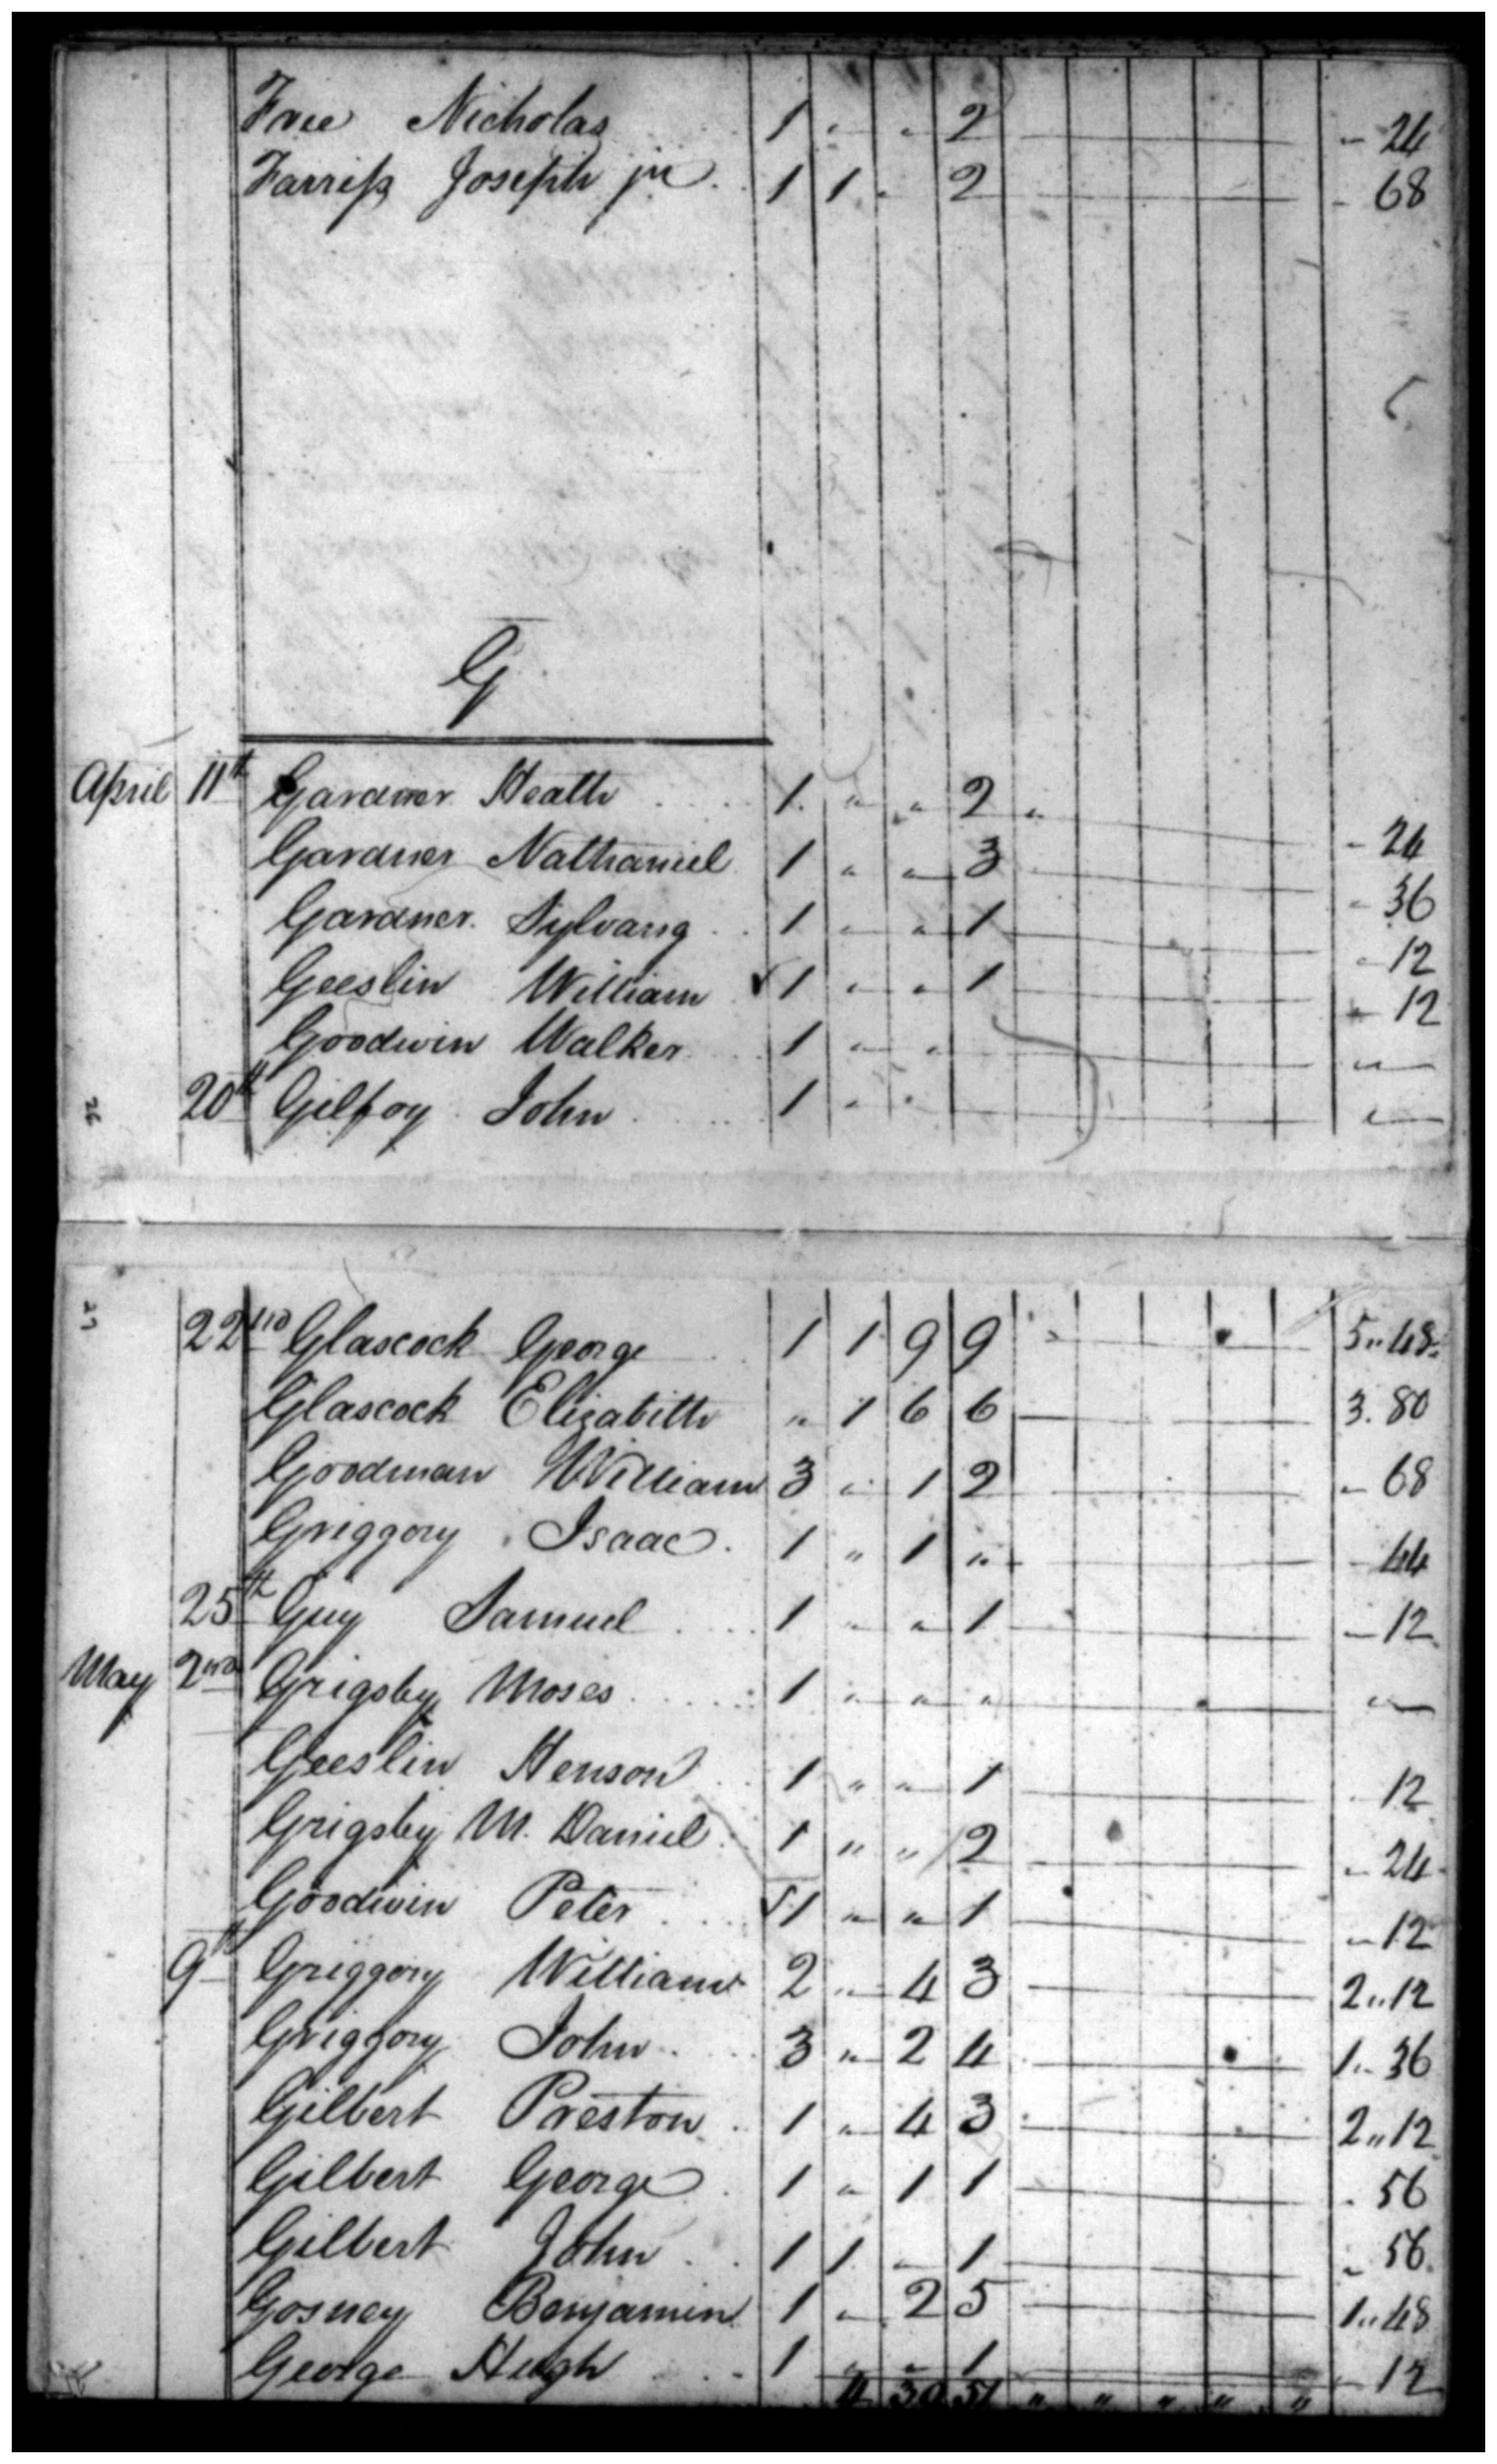 Free Nicholas 1 " " 2 - 24
Farriss Joseph jr. 1 1 " 2 - 68
G
April 11th Gardner Heath 1 " " 2 " - 24
Gardner Nathaniel 1 " " 3 - 36
Gardner Sylvans 1 " " 1 - 12
Geeslin William √ 1 " " 1 - 12
Goodwin Walker 1 " " "
26 20th Gilfoy John 1 " " "
27 22nd Glascock George 1 1 9 9 5 " 48
Glascock Elizabeth " 1 6 6 3. 80
Goodman William 3 " 1 2 - 68
Griggory Isaac 1 " 1 " - 44
25th Guy Samuel 1 " " 1 - 12
May 2nd Grigsby Moses 1 " " " "
Geeslin Henson 1 " " 1 - 12
Grigsby M. Daniel 1 " " 2 - 24
Goodwin Peter √ 1 " " 1 - 12
9th Griggory William 2 " 4 3 2 " 12
Griggory John 3 " 2 4 1 " 36
Gilbert Preston 1 " 4 3 2 " 12
Gilbert George 1 " 1 1 - 56
Gilbert John 1 1 " 1 - 56
Gosney Benjamin 1 " 2 5 1 " 48
George Hugh 1 " " 1 - 12
4 30 51 " " " " "